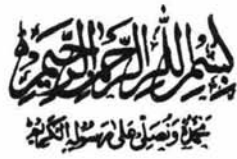 بسم الله الرحمن الرحیم
نحمده ونصلی علی رسوله الکریم